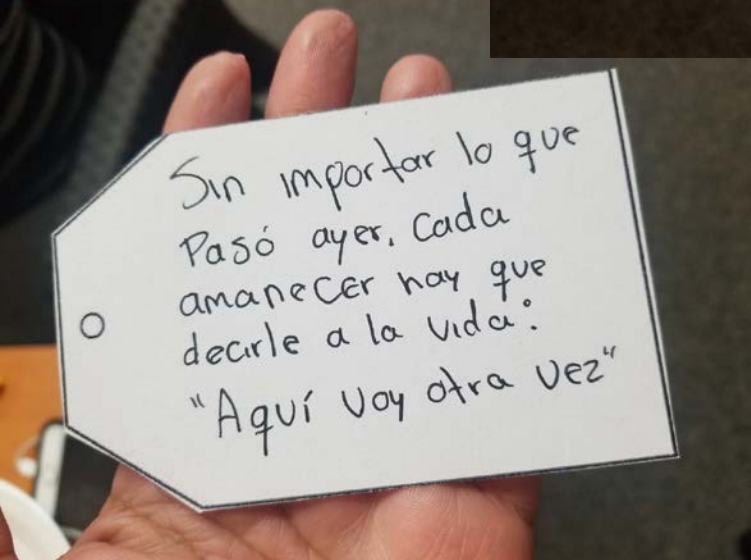 Sin importar lo que
Pasó ayer, cada
amanecer hay que
decirle a la vida:
"Aquí voy otra vez"